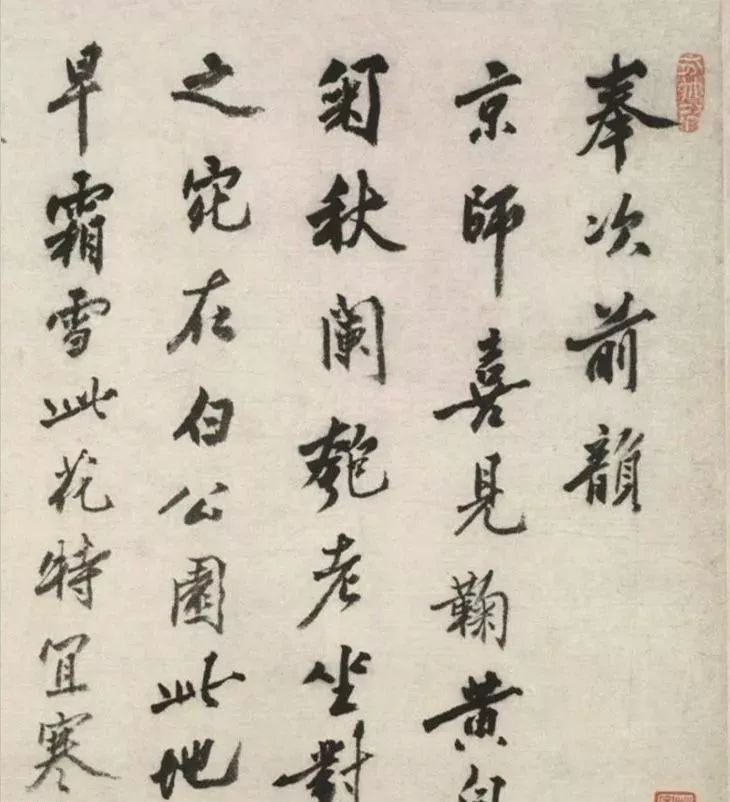 奉次前韻
京師喜見鞠黄
秋闌匏老坐對
之宛在白公園此地
早霜雪此花特宜寒